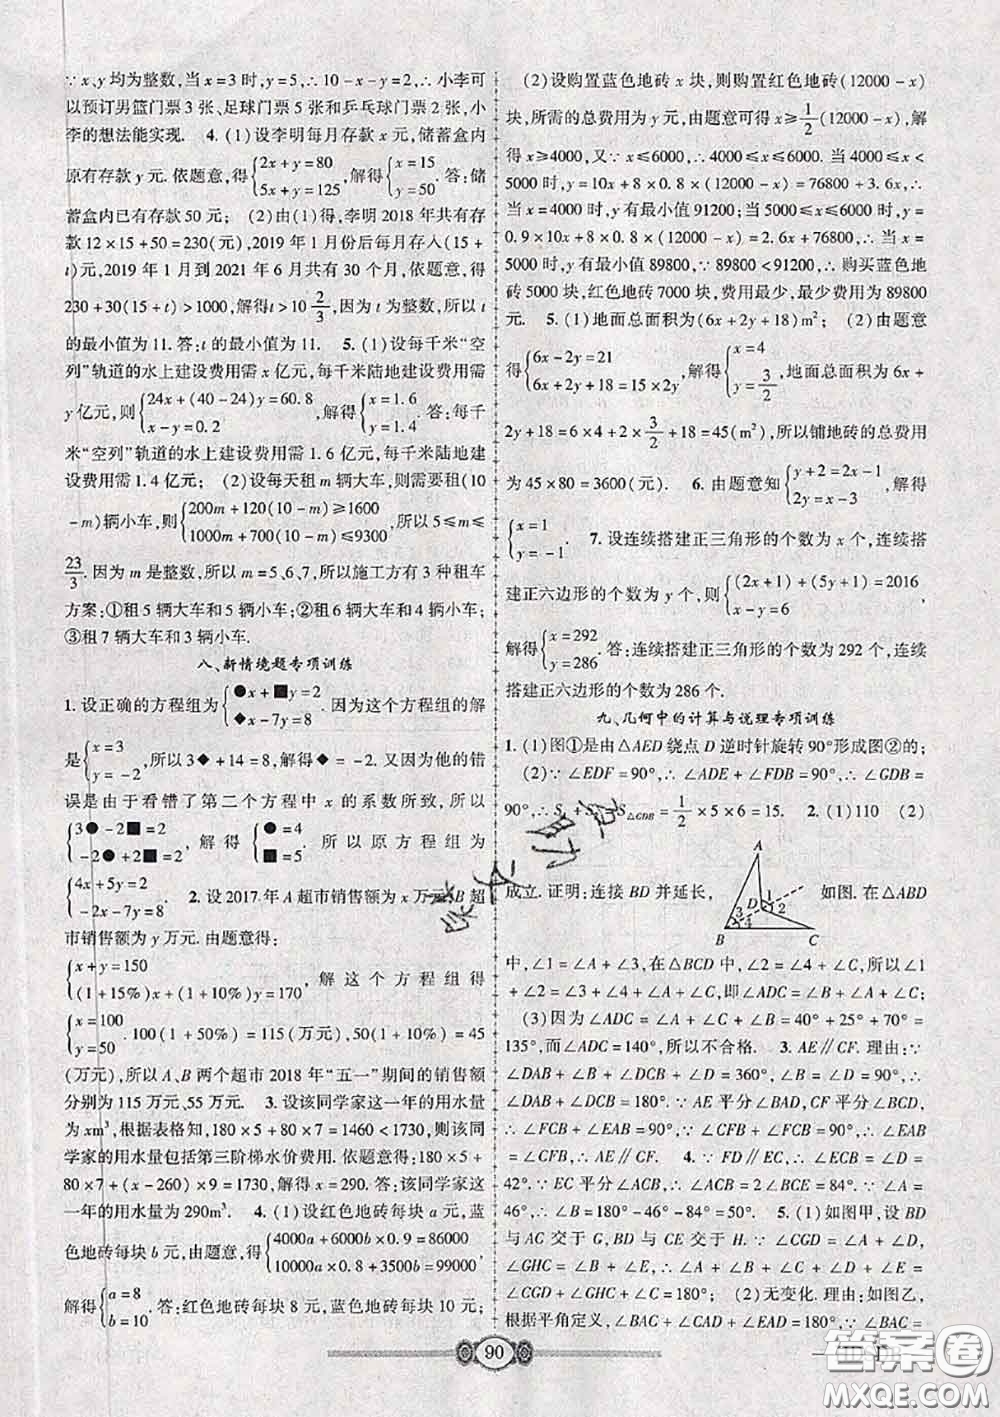 ∵ x、y 均为整数,当 x=3 时,y=5,∴ 10-x-y=2,∴ 小李可
以预订男篮门票 3 张、足球门票 5 张和乒乓球门票 2 张,小
李的想法能实现. 4. (1)设李明每月存款 x 元,储蓄盒内
原有存款 y 元. 依题意,得{2x+y=80 5x+y=125,解得{x=15 y=50. 答:储
蓄盒内已有存款 50 元; (2)由(1)得,李明 2018 年共有存
款 12×15+50=230(元),2019 年 1 月份后每月存入(15+
t)元,2019 年 1 月到 2021 年 6 月共有 30 个月,依题意,得
230+30(15+t)>1000,解得t>10 2/3,因为 t 为整数,所以 t
的最小值为 11. 答:t 的最小值为 11. 5. (1)设每千米“空
列”轨道的水上建设费用需 x 亿元,每千米陆地建设费用需
y 亿元,则{24x+(40-24)y=60.8 x-y=0.2,解得{x=1.6 y=1.4. 答:每千
米“空列”轨道的水上建设费用需 1.6 亿元,每千米陆地建
设费用需 1.4 亿元; (2)设每天租 m 辆大车,则需要租(10
-m)辆小车,则{200m+120(10-m)≥1600 1000m+700(10-m)≤9300,所以 5≤m≤
23/3. 因为 m 是整数,所以 m=5、6、7,所以施工方有 3 种租车
方案:①租 5 辆大车和 5 辆小车;②租 6 辆大车和 4 辆小车;
③租 7 辆大车和 3 辆小车.
八、新情境题专项训练
1. 设正确的方程组为{●x+■y=2 ◆x-7y=8. 因为这个方程组的解
是{x=3 y=-2,所以 3◆+14=8,解得◆=-2. 又因为他的错
误是由于看错了第二个方程中 x 的系数所致,所以
{3●-2■=2 -2●+2■=2,解得{●=4 ■=5. 所以原方程组为
{4x+5y=2 -2x-7y=8. 2. 设 2017 年 A 超市销售额为 x 万元,B 超
市销售额为 y 万元. 由题意得:
{x+y=150 (1+15%)x+(1+10%)y=170,解这个方程组得
{x=100 y=50. 100(1+50%)=115(万元),50(1+10%)=45
(万元),所以 A、B 两个超市 2018 年“五一”期间的销售额
分别为 115 万元、55 万元. 3. 设该同学家这一年的用水量
为 xm³,根据表格知,180×5+80×7=1460<1730,则该同
学家的用水量包括第三阶梯水价费用. 依题意得:180×5+
80×7+(x-260)×9=1730,解得 x=290. 答:该同学家这
一年的用水量为 290m³. 4. (1)设红色地砖每块 a 元,蓝
色地砖每块 b 元,由题意,得{4000a+6000b×0.9=86000 10000a×0.8+3500b=99000,
解得{a=8 b=10. 答:红色地砖每块 8 元,蓝色地砖每块 10 元;
(2)设购置蓝色地砖 x 块,则购置红色地砖(12000-x)
块,所需的总费用为 y 元,由题意可得 x≥1/2(12000-x),解
得 x≥4000,又∵ x≤6000,∴ 4000≤x≤6000. 当 4000≤x<
5000 时,y=10x+8×0.8×(12000-x)=76800+3.6x,∴
当 x=4000 时,y 有最小值 91200;当 5000≤x≤6000 时,y=
0.9×10x+8×0.8×(12000-x)=2.6x+76800,∴ 当 x=
5000 时,y 有最小值 89800,∵ 89800<91200,∴ 购买蓝色地
砖 5000 块,红色地砖 7000 块,费用最少,最少费用为 89800
元. 5. (1)地面总面积为(6x+2y+18)m²; (2)由题意
得{6x-2y=21 6x+2y+18=15×2y,解得{x=4 y=3/2,地面总面积为 6x+
2y+18=6×4+2×3/2+18=45(m²),所以铺地砖的总费用
为 45×80=3600(元). 6. 由题意知{y+2=2x-1 2y=x-3,解得
{x=1 y=-1. 7. 设连续搭建正三角形的个数为 x 个,连续搭
建正六边形的个数为 y 个,则{(2x+1)+(5y+1)=2016 x-y=6,
解得{x=292 y=286. 答:连续搭建正三角形的个数为 292 个,连续
搭建正六边形的个数为 286 个.
九、几何中的计算与说理专项训练
1. (1)图①是由△AED 绕点 D 逆时针旋转 90°形成图②的;
(2)∵ ∠EDF=90°,∴ ∠ADE+∠FDB=90°,∴ ∠GDB=
90°,∴ S +S S△GDB=1/2×5×6=15. 2. (1)110 (2)
成立. 证明:连接 BD 并延长, 如图. 在△ABD
A
D 1 2
3 4
B C
中,∠1=∠A+∠3,在△BCD 中,∠2=∠4+∠C,所以∠1
+∠2=∠3+∠4+∠A+∠C,即∠ADC=∠B+∠A+∠C;
(3)因为∠ADC=∠A+∠C+∠B=40°+25°+70°=
135°,而∠ADC=140°,所以不合格. 3. AE∥CF. 理由:∵
∠DAB+∠B+∠DCB+∠D=360°,∠B=∠D=90°,∴
∠DAB+∠DCB=180°. ∵ AE 平分∠BAD,CF 平分∠BCD,
∴ ∠FCB+∠EAB=90°,∵ ∠CFB+∠FCB=90°,∴ ∠EAB
=∠CFB,∴ AE∥CF. 4. ∵ FD∥EC,∴ ∠ECB=∠D=
42°. ∵ EC 平分∠ACB,∴ ∠ACB=2∠BCE=84°. ∵ ∠A=
46°,∴ ∠B=180°-46°-84°=50°. 5. (1)如图甲,设 BD
与 AC 交于 G,BD 与 CE 交于 H. ∵ ∠CGD=∠A+∠D,
∠GHC=∠B+∠E,∴ ∠A+∠B+∠C+∠D+∠E=
∠CGD+∠GHC+∠C=180°; (2)无变化. 理由:如图乙,
根据平角定义,∠BAC+∠CAD+∠EAD=180°,∵ ∠BAC=
90
答案圈
MXQE.COM